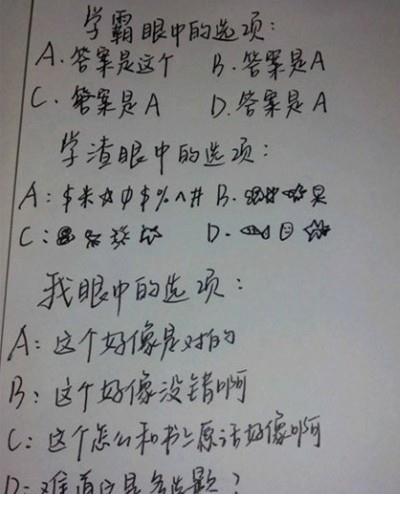 学霸眼中的选项:
A. 答案是这个 B. 答案是A
C. 答案是A D. 答案是A
学渣眼中的选项:
A:$米☆0$%^# B.
C: D.
我眼中的选项:
A:这个好像是对的
B:这个好像没错啊
C:这个怎么和书上原话好像啊
D:难道这是多选题?